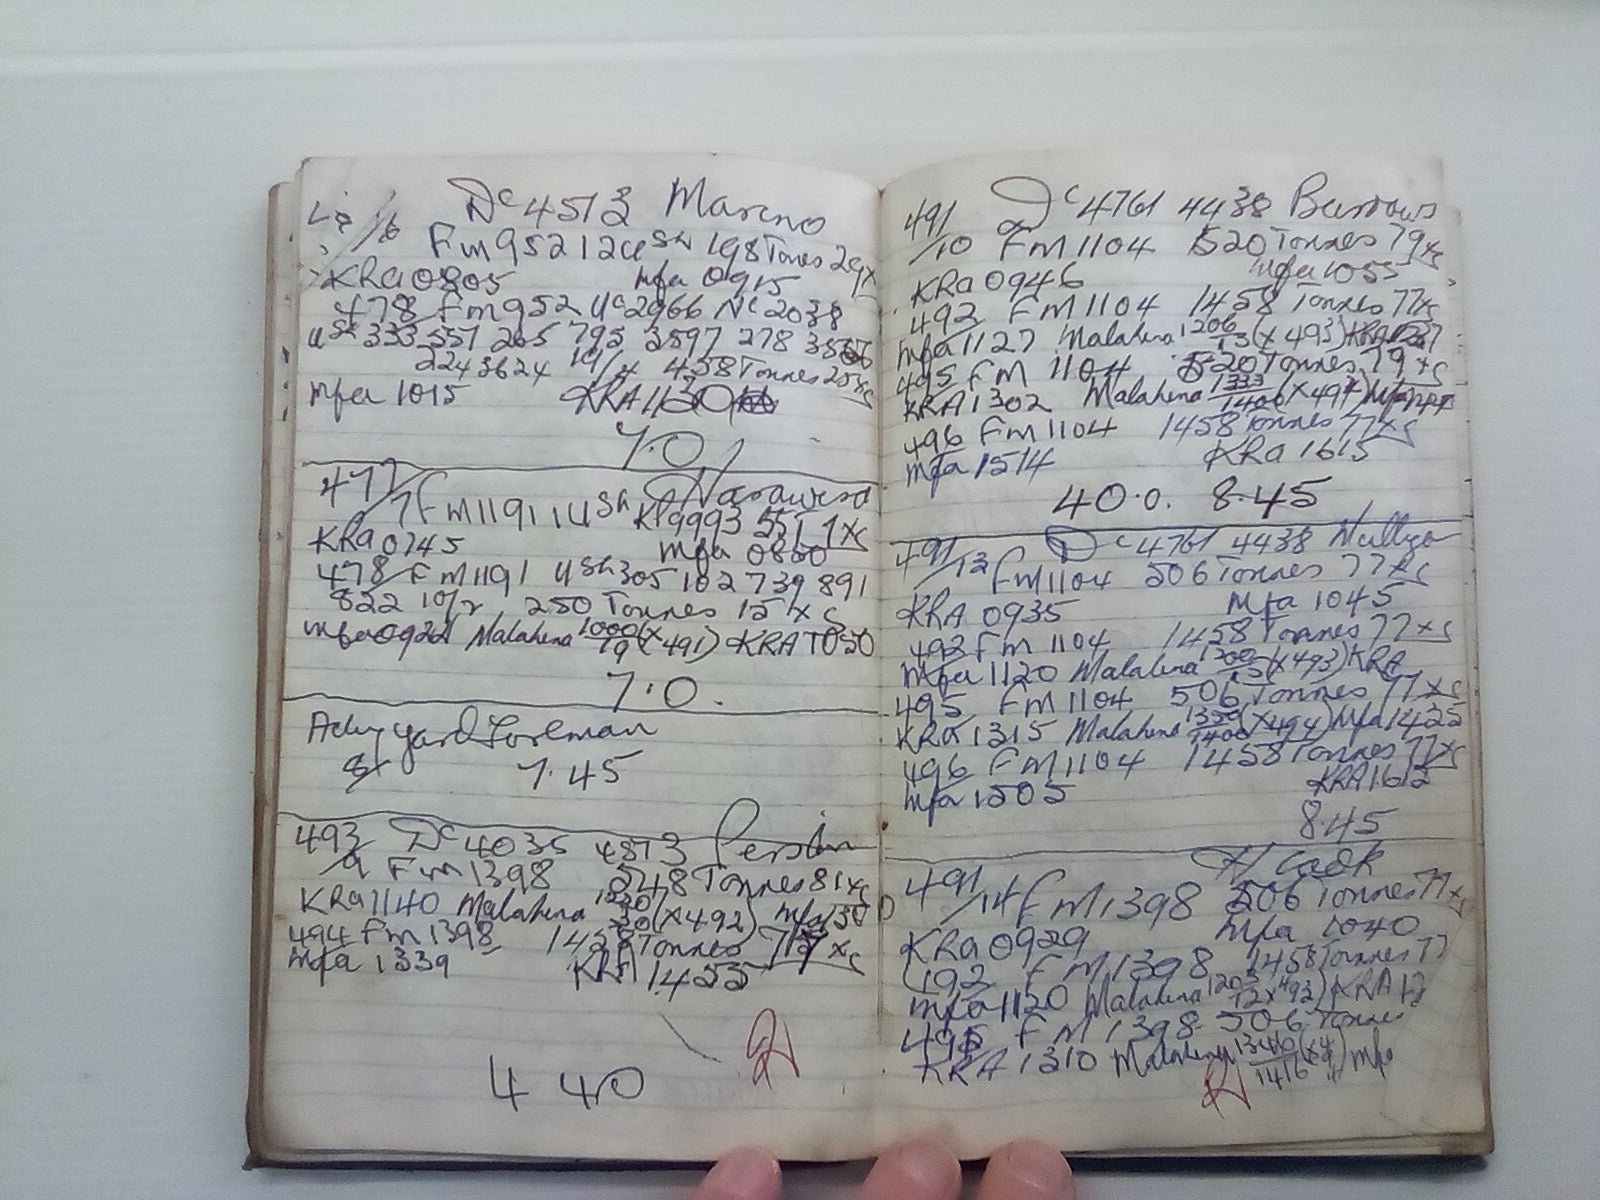 Dc 4513 Mareno
/6 Fm 952 12 USh 198 Tonnes 29x
KRa 0805 mfa 0915
478 Fm 952 Uc 2966 Nc 2038
USh 333 557 265 795 3597 278
224 3624 19/4 458 Tonnes 25xs
mfa 1015 KRA 1130
7.0
477
/7 Fm 1191 1 USh KP 9993 551 1xs
KRa 0745 mfa 0850
478 Fm 1191 USh 305 102 739 891
822 10/2 250 Tonnes 15xs
mfa 0922 Malahena 1000/19 (x491) KRA 1050
7.0.
Actng yard Foreman
7.45
493 Dc 4035 4813
/9 Fm 1398 548 Tonnes 81xs
KRa 1140 Malahena (x492) mfa
494 Fm 1398 1458 Tonnes xs
mfa 1339 KRA 1455
4 40
491 Dc 4761 4438 Burrows
/10 FM 1104 520 Tonnes 79xs
KRa 0946 mfa 1055
492 FM 1104 1458 Tonnes 77xs
mfa 1127 Malahena 1206/13 (x493) KRA
495 FM 1104 520 Tonnes 79xs
KRA 1302 Malahena 1333/1400 (x494) mfa
496 Fm 1104 1458 Tonnes 77xs
mfa 1514 KRa 1615
40.0. 8.45
491 Dc 4761 4438
/12 Fm 1104 506 Tonnes 77xs
KRA 0935 mfa 1045
492 Fm 1104 1458 Tonnes 77xs
mfa 1120 Malahena 1200/13 (x493) KRA
495 FM 1104 506 Tonnes 77xs
KRa 1315 Malahena 1350/1400 (x494) mfa 1425
496 FM 1104 1458 Tonnes 77xs
mfa 1505 KRA 1612
8.45
491 H Cook
/14 Fm 1398 506 Tonnes 77xs
KRa 0929 mfa 1040
492 FM 1398 1458 Tonnes 77
mfa 1120 Malahena 1203/12 x493) KRA 12
495 FM 1398 506 Tonnes
KRA 1310 Malahena 1340/1416 (x4 mfa